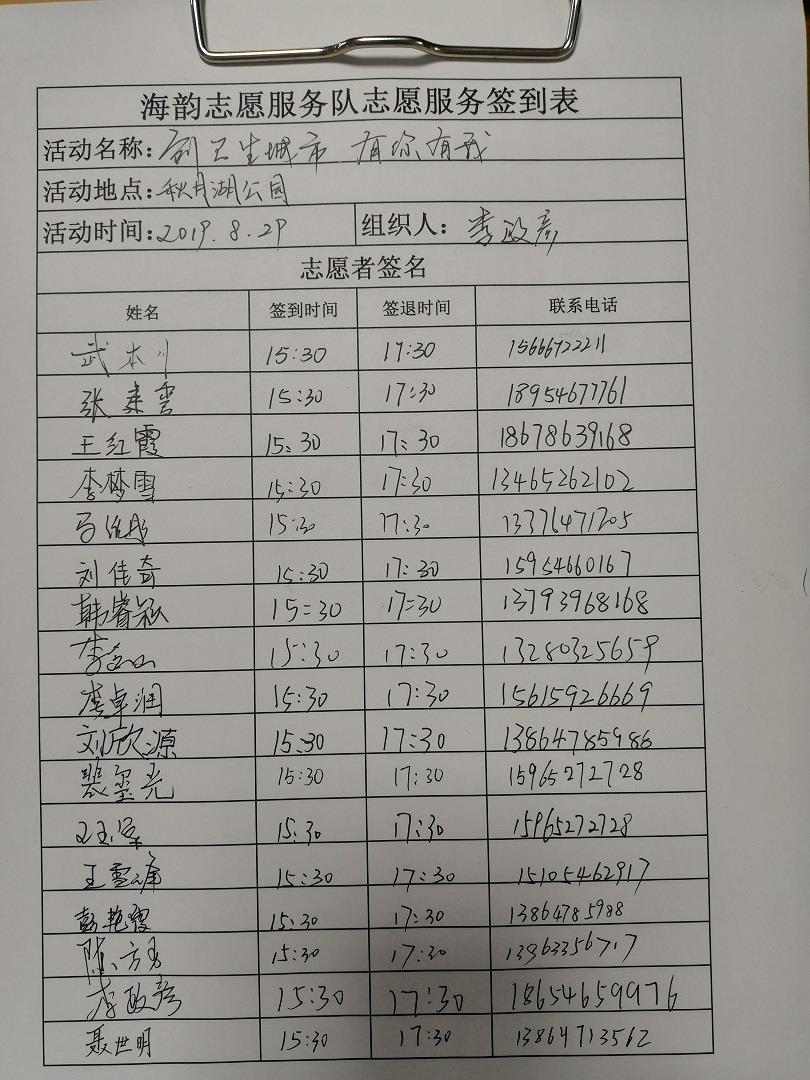 海韵志愿服务队志愿服务签到表
活动名称：创卫生城市 有你有我
活动地点：秋月湖公园
活动时间：2019.8.29 组织人：李政彦
志愿者签名
姓名 签到时间 签退时间 联系电话
武本川 15:30 17:30 15666722211
张来云 15:30 17:30 18954677761
王红霞 15:30 17:30 18678639168
李梦雪 15:30 17:30 13465262102
15:30 17:30 13376471705
刘佳奇 15:30 17:30 15954660167
韩睿颖 15:30 17:30 13793968168
15:30 17:30 13280325659
15:30 17:30 15615926669
刘欣源 15:30 17:30 13864785986
裴玺光 15:30 17:30 15965272728
15:30 17:30 15965272728
15:30 17:30 15105462917
彭艳霞 15:30 17:30 13864785988
15:30 17:30 13963356717
李政彦 15:30 17:30 18654659976
聂世明 15:30 17:30 13864713562